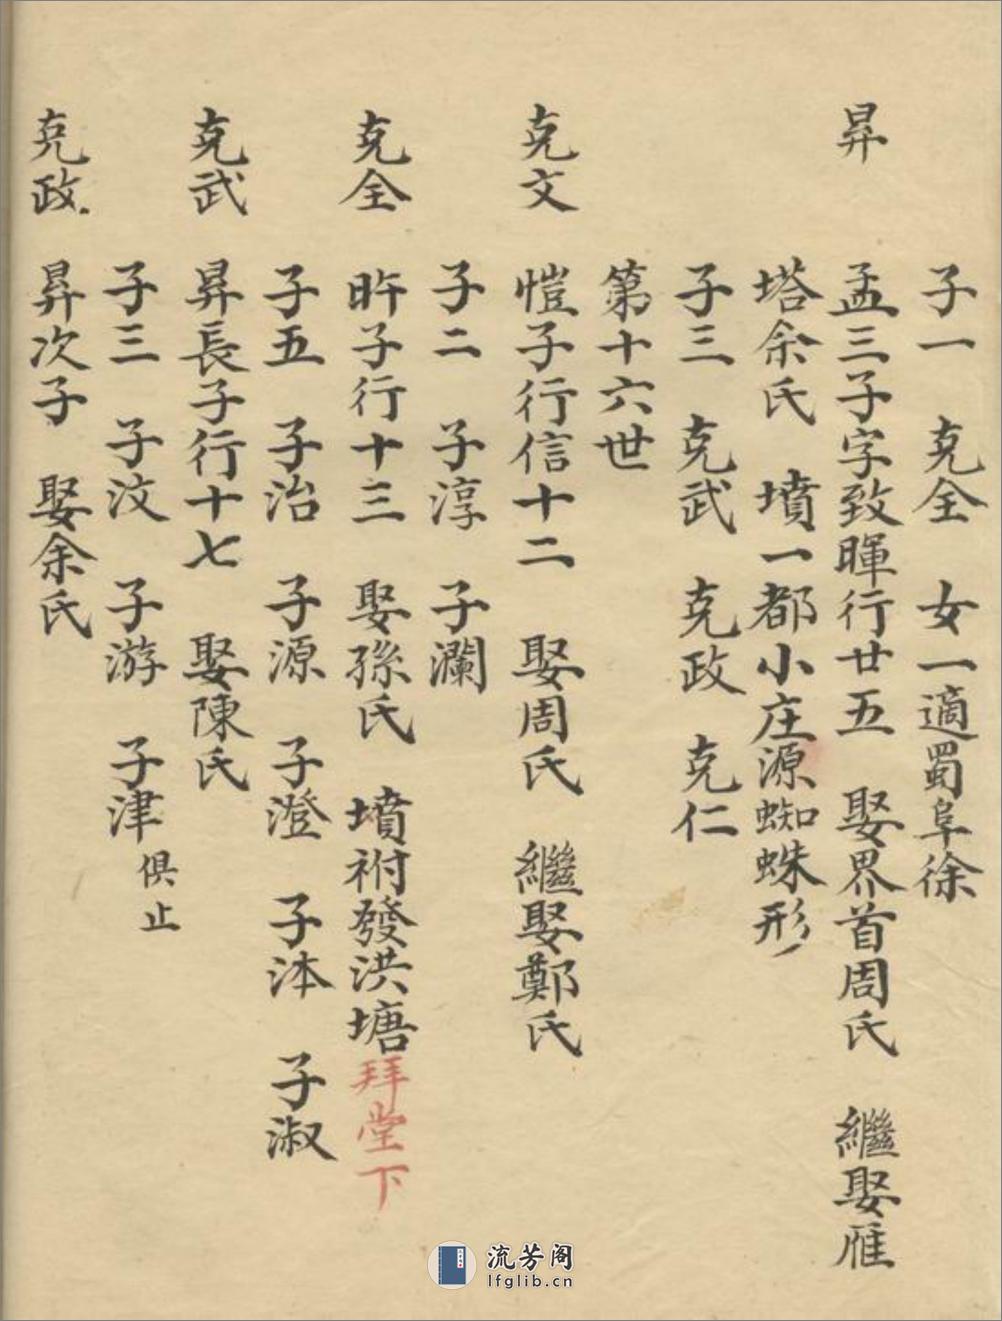 子一　克全　女一適蜀阜徐
昇　孟三子字致暉行廿五　娶界首周氏　繼娶雁
塔余氏　墳一都小庄源蜘蛛形
子三　克武　克政　克仁
第十六世
克文　愷子行信十二　娶周氏　繼娶鄭氏
子二　子淳　子瀾
克全　旿子行十三　娶孫氏　墳祔發洪塘拜堂下
子五　子治　子源　子澄　子沐　子淑
克武　昇長子行十七　娶陳氏
子三　子汶　子游　子津俱止
克政　昇次子　娶余氏
流芳阁
lfglib.cn